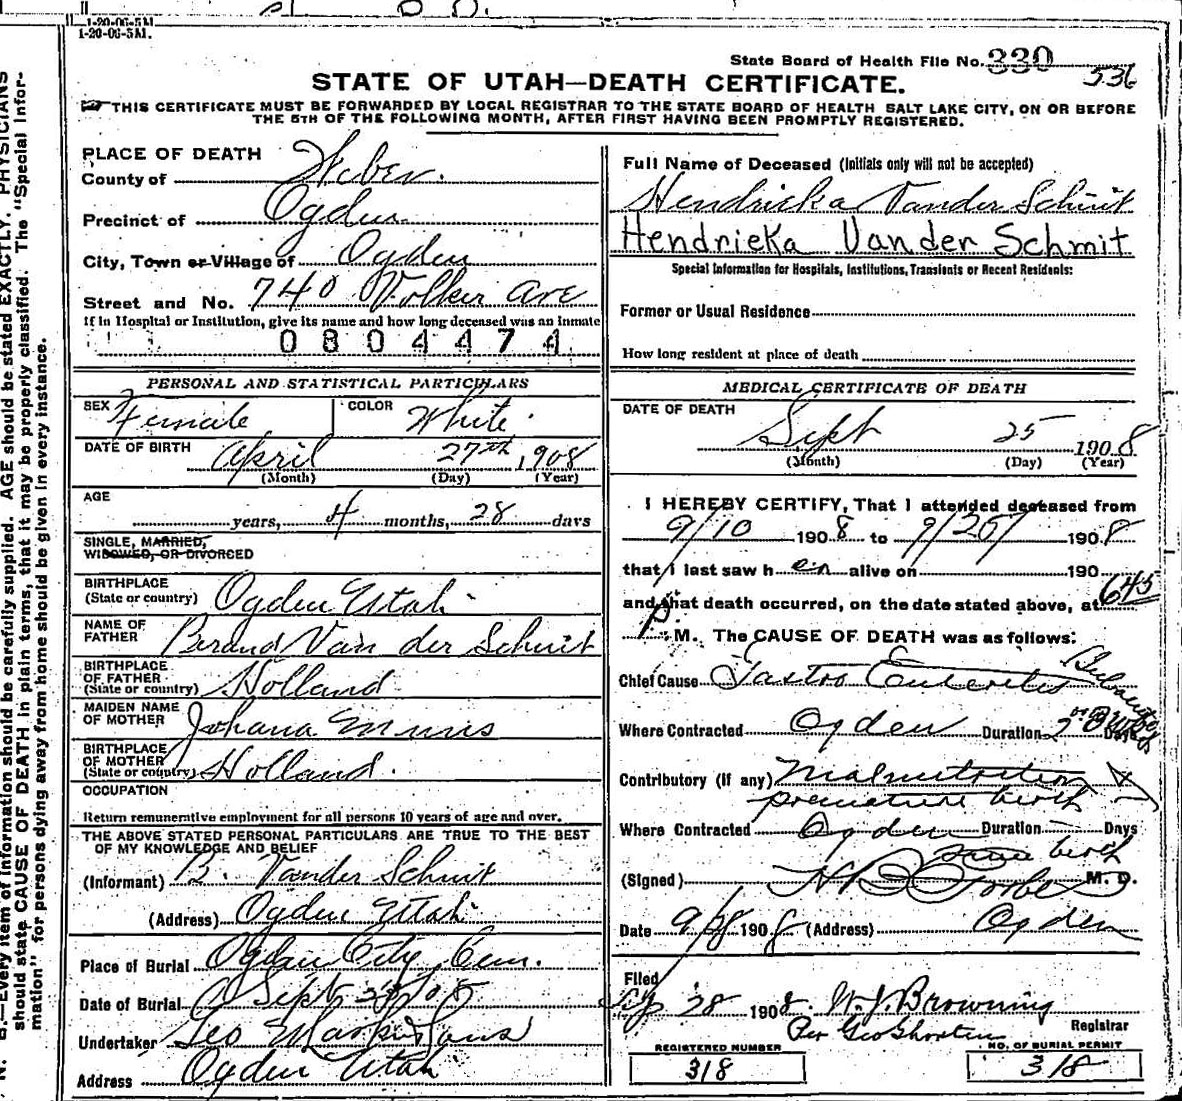 1-20-06-5M.
1-20-06-5M.
State Board of Health File No. 330
536
STATE OF UTAH—DEATH CERTIFICATE.
THIS CERTIFICATE MUST BE FORWARDED BY LOCAL REGISTRAR TO THE STATE BOARD OF HEALTH SALT LAKE CITY, ON OR BEFORE
THE 5TH OF THE FOLLOWING MONTH, AFTER FIRST HAVING BEEN PROMPTLY REGISTERED.
PLACE OF DEATH
County of Weber.
Precinct of Ogden
City, Town or Village of Ogden
Street and No. 740 Volker Ave
If in Hospital or Institution, give its name and how long deceased was an inmate
0804474
PERSONAL AND STATISTICAL PARTICULARS
SEX Female COLOR White.
DATE OF BIRTH April 27th, 1908
(Month) (Day) (Year)
AGE
years, 4 months, 28 days
SINGLE, MARRIED,
WIDOWED, OR DIVORCED
BIRTHPLACE
(State or country) Ogden Utah
NAME OF
FATHER Berand Van der Schuit
BIRTHPLACE
OF FATHER
(State or country) Holland
MAIDEN NAME
OF MOTHER Johana
BIRTHPLACE
OF MOTHER
(State or country) Holland.
OCCUPATION
Return remunerative employment for all persons 10 years of age and over.
THE ABOVE STATED PERSONAL PARTICULARS ARE TRUE TO THE BEST
OF MY KNOWLEDGE AND BELIEF
(Informant) B. Vander Schuit
(Address) Ogden Utah
Place of Burial Ogden City Cem.
Date of Burial Sept
Undertaker Geo
Address Ogden Utah
Full Name of Deceased (Initials only will not be accepted)
Hendricka Vander Schuit
Hendrieka Vander Schmit
Special Information for Hospitals, Institutions, Transients or Recent Residents:
Former or Usual Residence
How long resident at place of death
MEDICAL CERTIFICATE OF DEATH
DATE OF DEATH
Sept 25 1908
(Month) (Day) (Year)
I HEREBY CERTIFY, That I attended deceased from
9/10 1908 to 9/25 1908
that I last saw her alive on 190
and that death occurred, on the date stated above, at 645
P. M. The CAUSE OF DEATH was as follows:
Chief Cause Gastro Enteritis
Where Contracted Ogden Duration 2 Days
Contributory (if any) Malnutrition
premature birth
Where Contracted Ogden Duration Days
since birth
(Signed) H B Forbes M. D.
Date 9/28 1908 (Address) Ogden
Filed
Sep 28 1908 W. J. Browning
Per Geo Shorten Registrar
REGISTERED NUMBER
318
NO. OF BURIAL PERMIT
318
N. B.—Every item of information should be carefully supplied. AGE should be stated EXACTLY. PHYSICIANS
should state CAUSE OF DEATH in plain terms, that it may be properly classified. The "Special Infor-
mation" for persons dying away from home should be given in every instance.